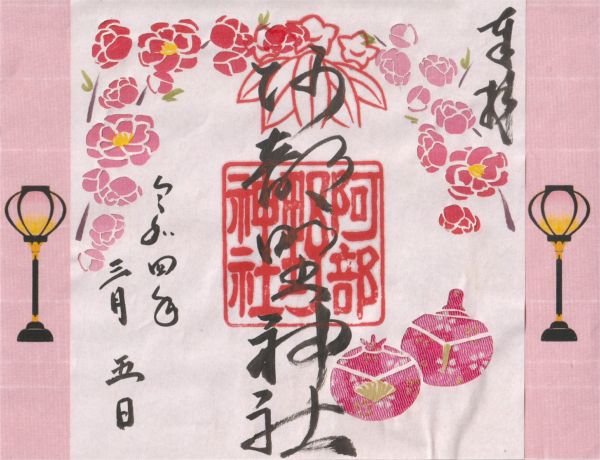 奉拝
阿部野神社
阿部
野
神社
令和四年
三月 五日